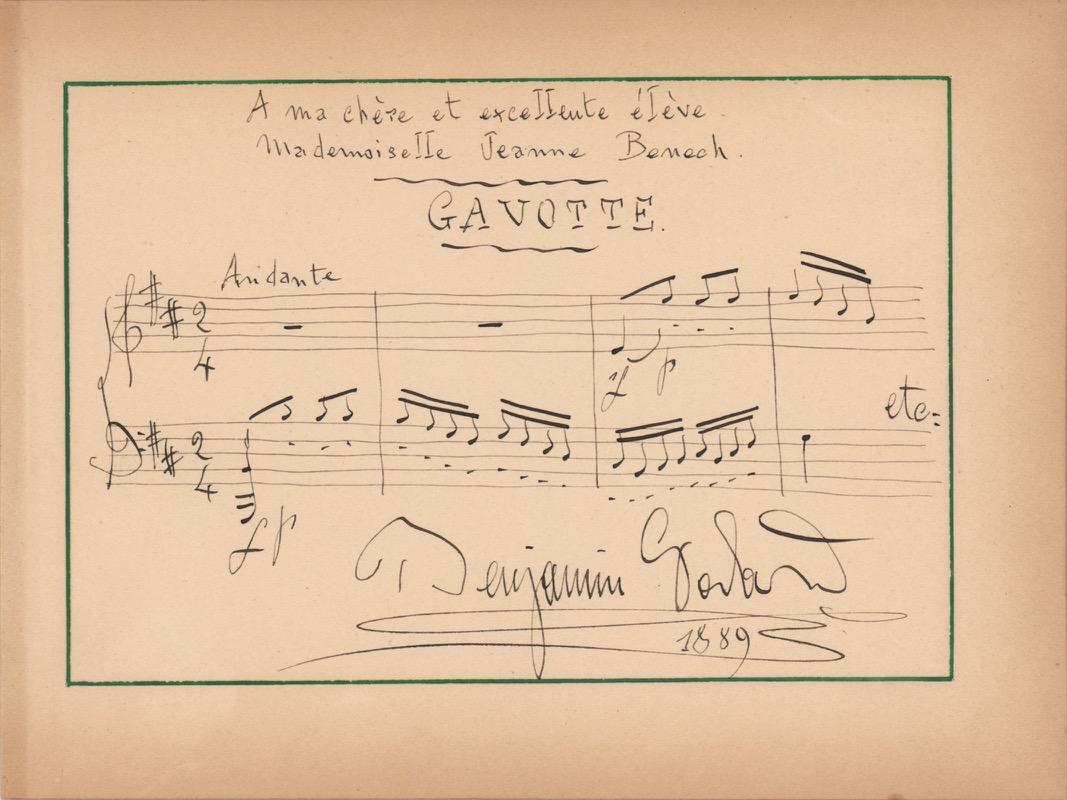 A ma chère et excellente élève.
Mademoiselle Jeanne Benech.
GAVOTTE.
Andante
2
4
f p
etc:
2
4
f p
Benjamin Godard
1889